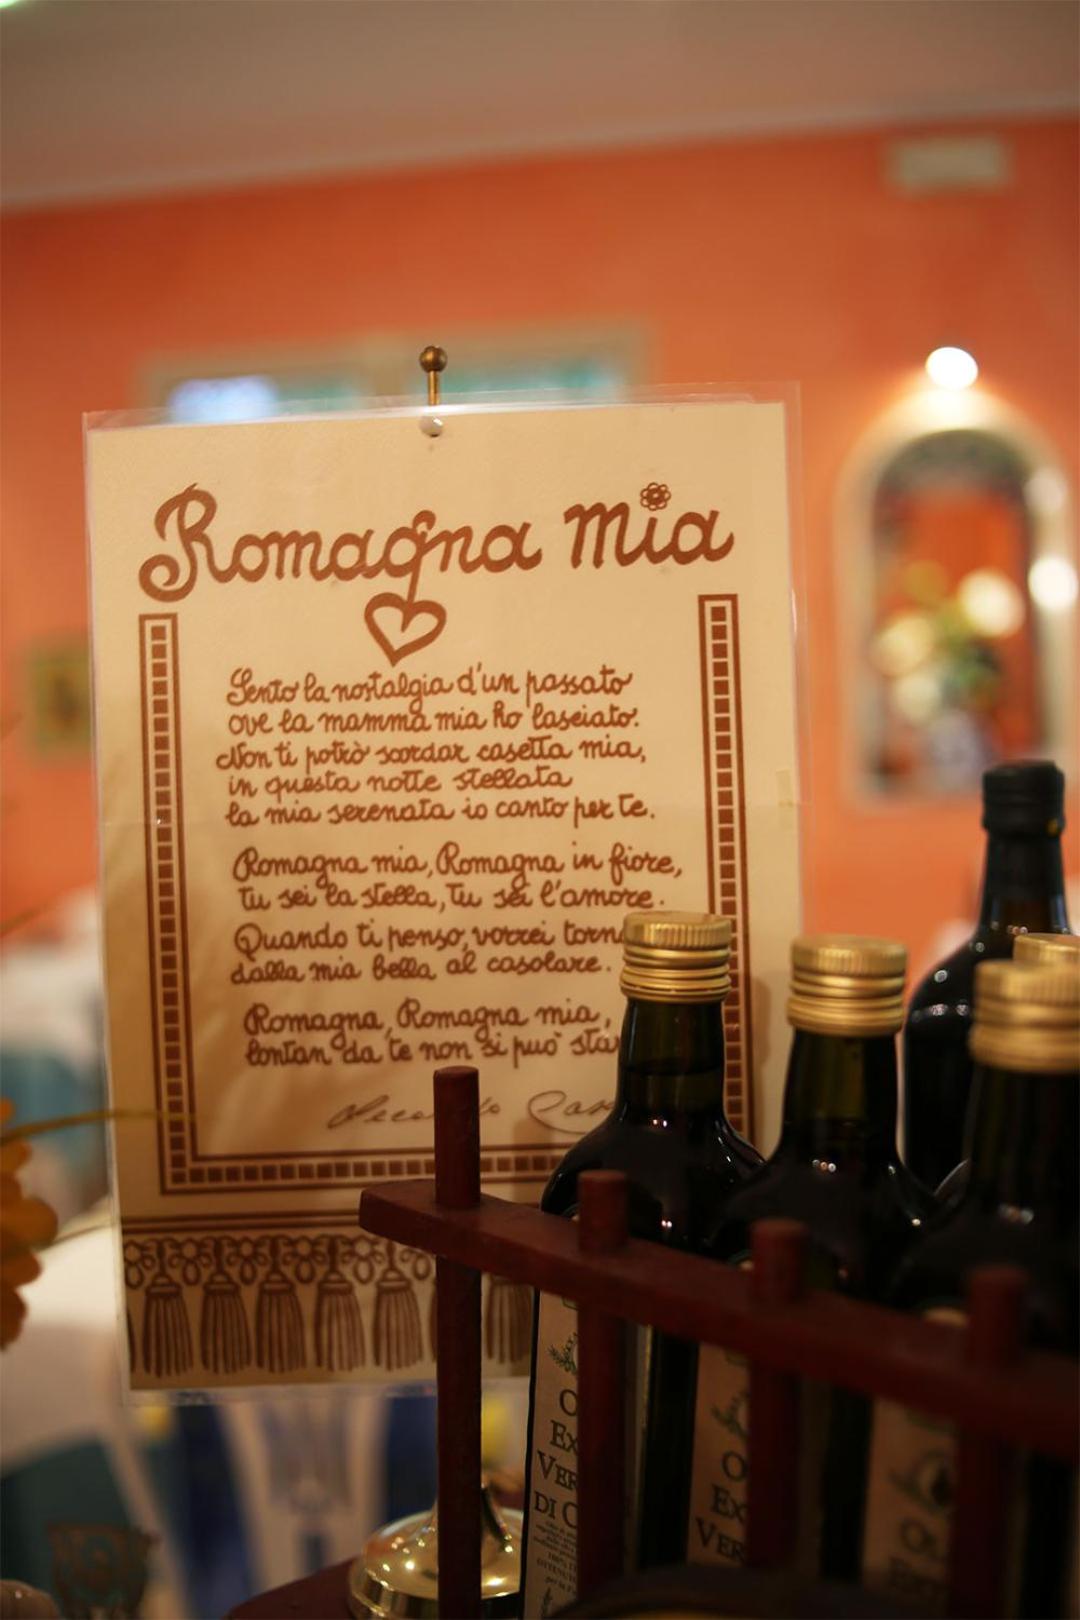 Romagna mia
Sento la nostalgia d'un passato
ove la mamma mia ho lasciato.
Non ti potrò scordar casetta mia,
in questa notte stellata
la mia serenata io canto per te.
Romagna mia, Romagna in fiore,
tu sei la stella, tu sei l'amore.
Quando ti penso, vorrei torn
dalla mia bella al casolare.
Romagna, Romagna mia,
lontan da te non si può sta
O
EX
VER
DI O
O
EX
VER